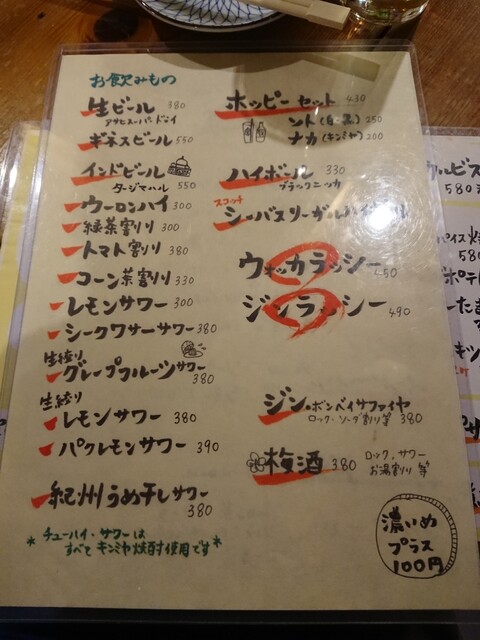 お飲みもの
生ビール 380
アサヒスーパードライ
ギネスビール 550
インドビール
タージマハル 550
ウーロンハイ 300
緑茶割り 300
トマト割り 380
コーン茶割り 330
レモンサワー 300
シークワサーサワー 380
生絞り
グレープフルーツサワー
380
生絞り
レモンサワー 380
パクレモンサワー 390
紀州うめ干しサワー
380
*チューハイ・サワーは
すべて キンミヤ焼酎使用です*
ホッピーセット 430
ソト(白・黒) 250
ナカ(キンミヤ) 200
ハイボール 330
ブラックニッカ
スコッチ
シーバスリーガルハイボール
ウォッカラッシー 450
ジンラッシー 490
ジン・ボンベイサファイヤ
ロック・ソーダ割り等 380
梅酒 380 ロック、サワー
お湯割り 等
濃いめ
プラス
100円
580
580